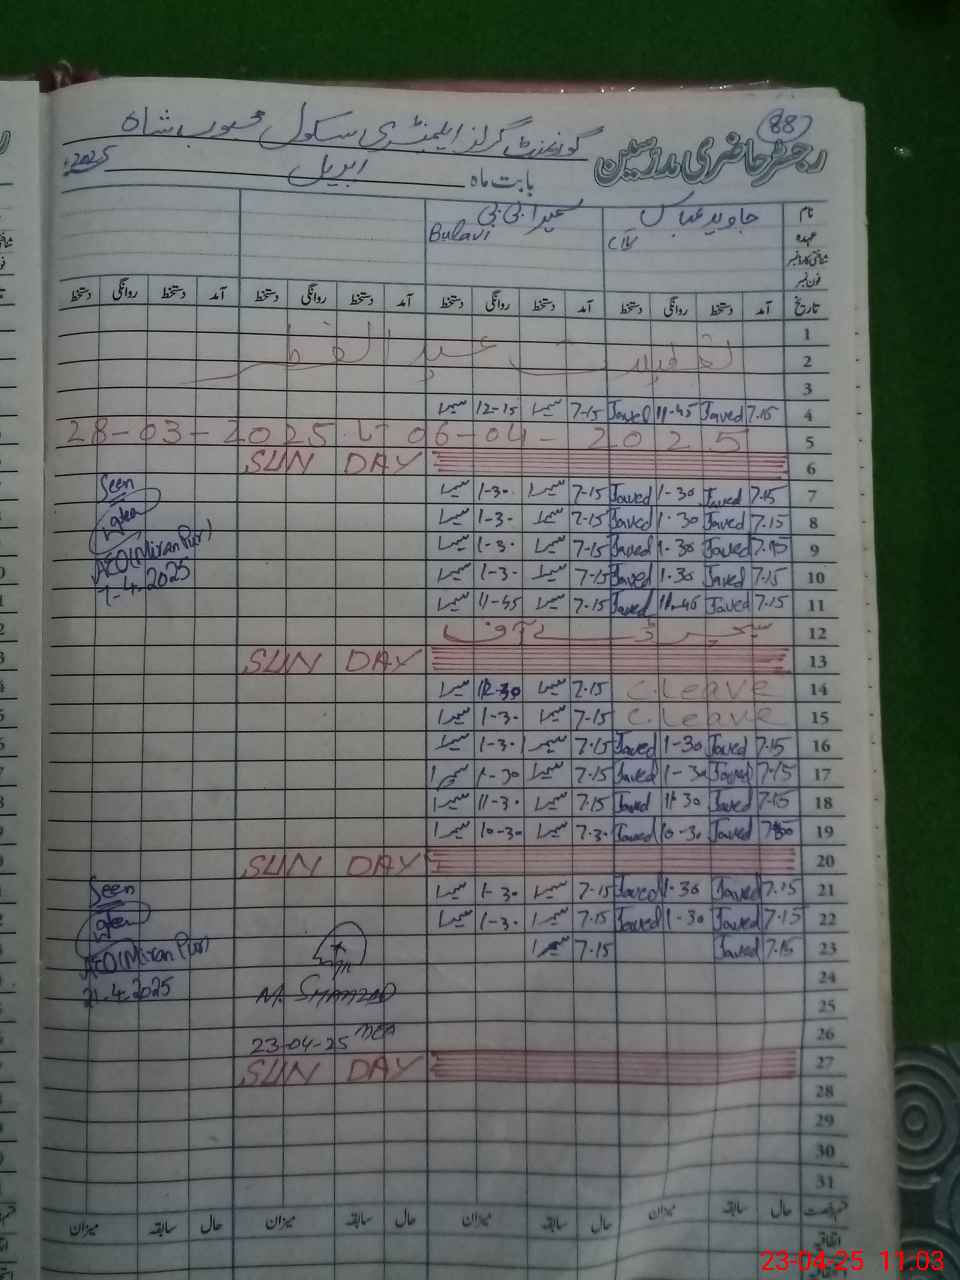 88
رجسٹر حاضری مدرسین گورنمنٹ گرلز ایلیمنٹری سکول محبوب شاہ
بابت ماہ اپریل 2025
نام جاوید عباس سمیرا بی بی
عہدہ C/IV Bulavi
شناختی کارڈ نمبر
فون نمبر
تاریخ آمد دستخط روانگی دستخط آمد دستخط روانگی دستخط آمد دستخط روانگی دستخط آمد دستخط روانگی دستخط
1
2 تعطیلات عید الفطر
3
4 7.15 Javed 11-45 Javed 7-15 سمیرا 12-15 سمیرا
5 28-03-2025 تا 06-04-2025
6 SUN DAY
7 7.15 Javed 1-30 Javed 7-15 سمیرا 1-30 سمیرا
8 7.15 Javed 1.30 Javed 7-15 سمیرا 1-30 سمیرا
9 7.15 Javed 1.30 Javed 7-15 سمیرا 1-30 سمیرا
10 7.15 Javed 1.30 Javed 7-15 سمیرا 1-30 سمیرا
11 7.15 Javed 11.45 Javed 7.15 سمیرا 11-45 سمیرا
Seen
AEO (Miran Pur)
7-4.2025
12 سیچر ڈے آف
13 SUN DAY
14 C.Leave 7.15 سمیرا 12-30 سمیرا
15 C.Leave 7-15 سمیرا 1-30 سمیرا
16 7.15 Javed 1-30 Javed 7-15 سمیرا 1-30 سمیرا
17 7-15 Javed 1-30 Javed 7.15 سمیرا 1-30 سمیرا
18 7-15 Javed 11-30 Javed 7.15 سمیرا 11-30 سمیرا
19 Javed 10-30 Javed 7.30 سمیرا 10-30 سمیرا
20 SUN DAY
21 7.15 Javed 1-30 Javed 7-15 سمیرا 1-30 سمیرا
22 7-15 Javed 1-30 Javed 7.15 سمیرا 1-30 سمیرا
23 7.15 Javed 7.15 سمیرا
Seen
AEO (Miran Pur)
21.4.2025
24
25 M. SHAHZAD
26 MEA
23-04-25
27 SUN DAY
28
29
30
31
حال سابقہ میزان حال سابقہ میزان حال سابقہ میزان حال سابقہ میزان
اتفاقیہ
23-04-25 11:03